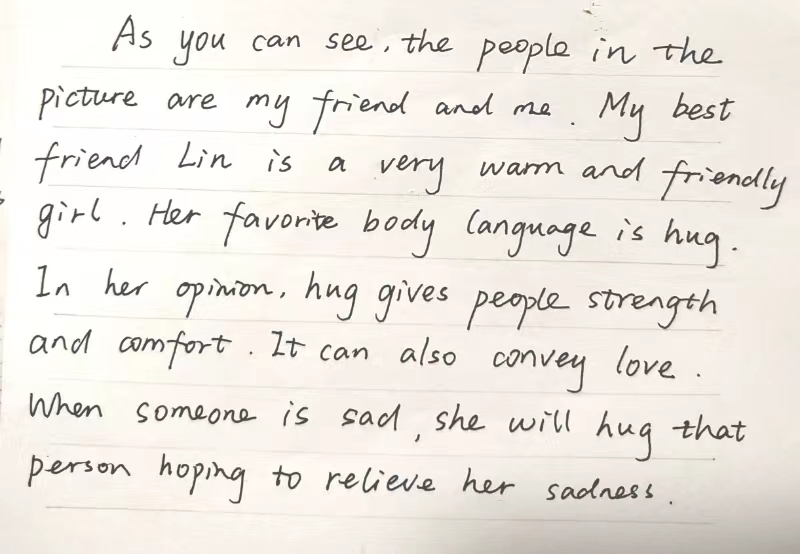 As you can see, the people in the
picture are my friend and me. My best
friend Lin is a very warm and friendly
girl. Her favorite body language is hug.
In her opinion, hug gives people strength
and comfort. It can also convey love.
When someone is sad, she will hug that
person hoping to relieve her sadness.